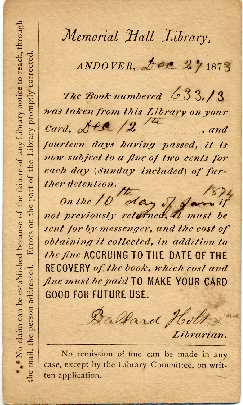 Memorial Hall Library,
ANDOVER, Dec 27 1873
The Book numbered 633.13
was taken from this Library on your
Card, Dec 12th, and
fourteen days having passed, it is
now subject to a fine of two cents for
each day (Sunday included) of fur-
ther detention.
On the 10th day of Jan 1874 if
not previously returned, it must be
sent for by messenger, and the cost of
obtaining it collected, in addition to
the fine ACCRUING TO THE DATE OF THE
RECOVERY of the book, which cost and
fine must be paid TO MAKE YOUR CARD
GOOD FOR FUTURE USE.
Ballard Holt
Librarian.
No remission of fine can be made in any
case, except by the Library Committee, on writ-
ten application.
*** No claim can be established because of the failure of any Library notice to reach, through
the mail, the person addressed. Errors on the part of the Library promptly corrected.